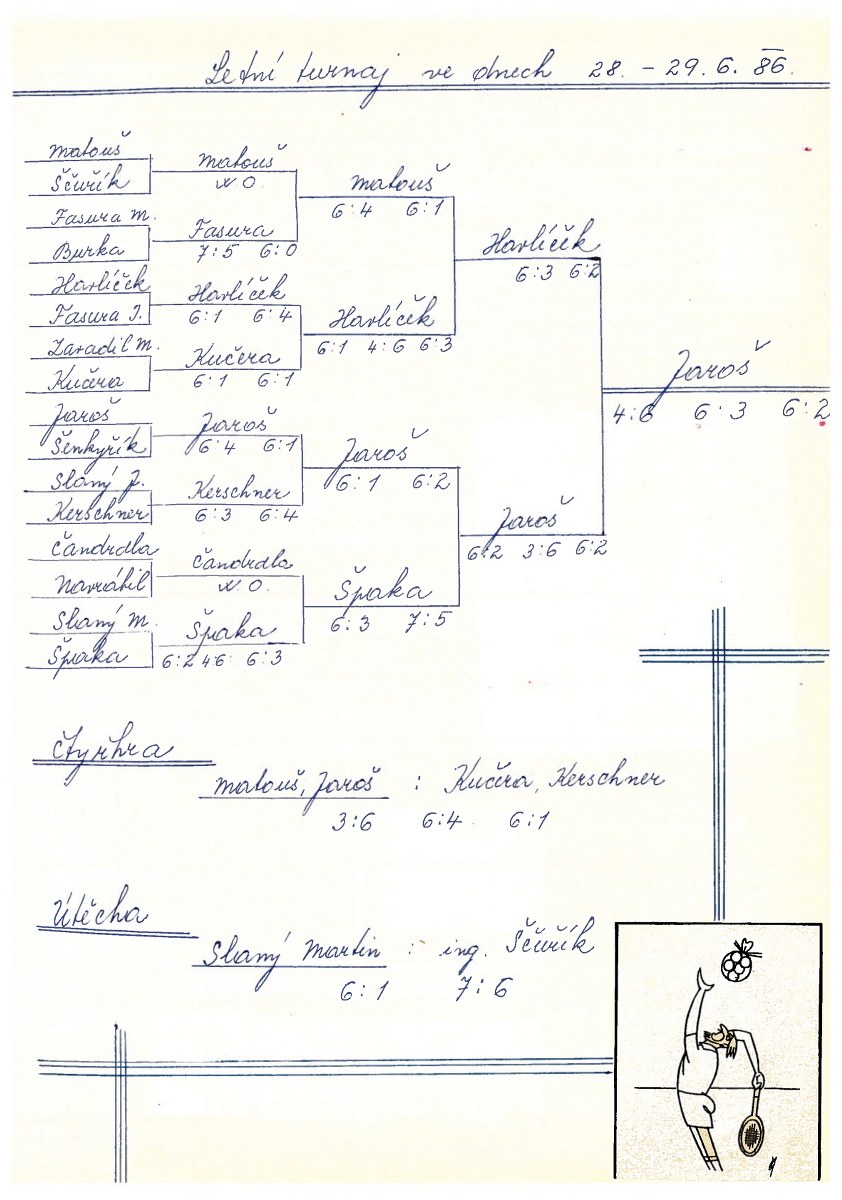 Letní turnaj ve dnech 28. - 29. 6. 86.
Matouš
Ščuřík
Fasura M.
Burka
Harlíček
Fasura J.
Zaradil M.
Kučera
Jaroš
Šenkyřík
Slaný J.
Kerschner
Čandrdla
Navrátil
Slaný M.
Špaka
Matouš
w 0.
Fasura
7:5 6:0
Harlíček
6:1 6:4
Kučera
6:1 6:1
Jaroš
6:4 6:1
Kerschner
6:3 6:4
Čandrdla
w 0.
Špaka
6:2 4:6 6:3
Matouš
6:4 6:1
Harlíček
6:1 4:6 6:3
Jaroš
6:1 6:2
Špaka
6:3 7:5
Harlíček
6:3 6:2
Jaroš
6:2 3:6 6:2
Jaroš
4:6 6:3 6:2
Čtyřhra
Matouš, Jaroš : Kučera, Kerschner
3:6 6:4 6:1
Útěcha
Slaný Martin : ing. Ščuřík
6:1 7:6